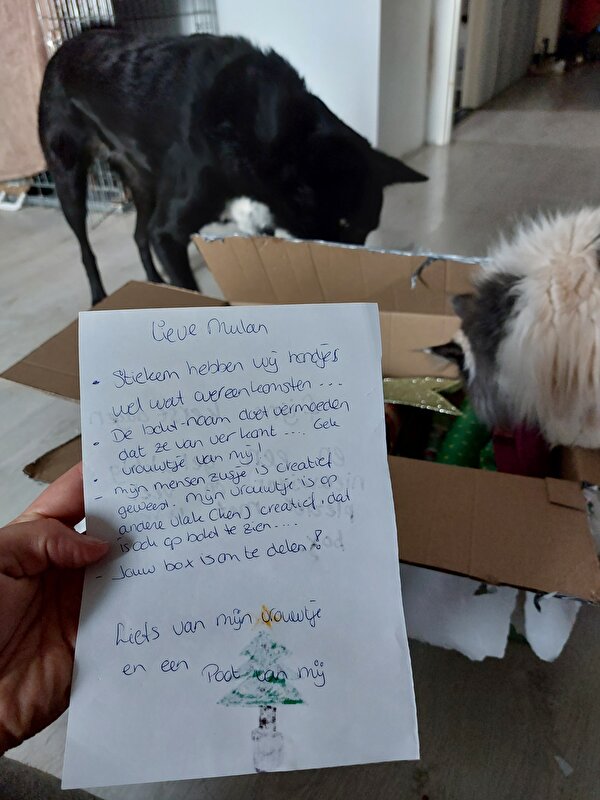 Lieve Mulan
• Stiekem hebben wij hondjes
wel wat overeenkomsten ....
• De bold-naam doet vermoeden
dat ze van ver komt .... Gek
vrouwtje van mij!
- mijn mensen zusje is creatief
geweest. mijn vrouwtje is op
andere vlak(ken) creatief, dat
is ook op bold te zien ....
- Jouw box is om te delen!?
Liefs van mijn vrouwtje
en een Poot van mij